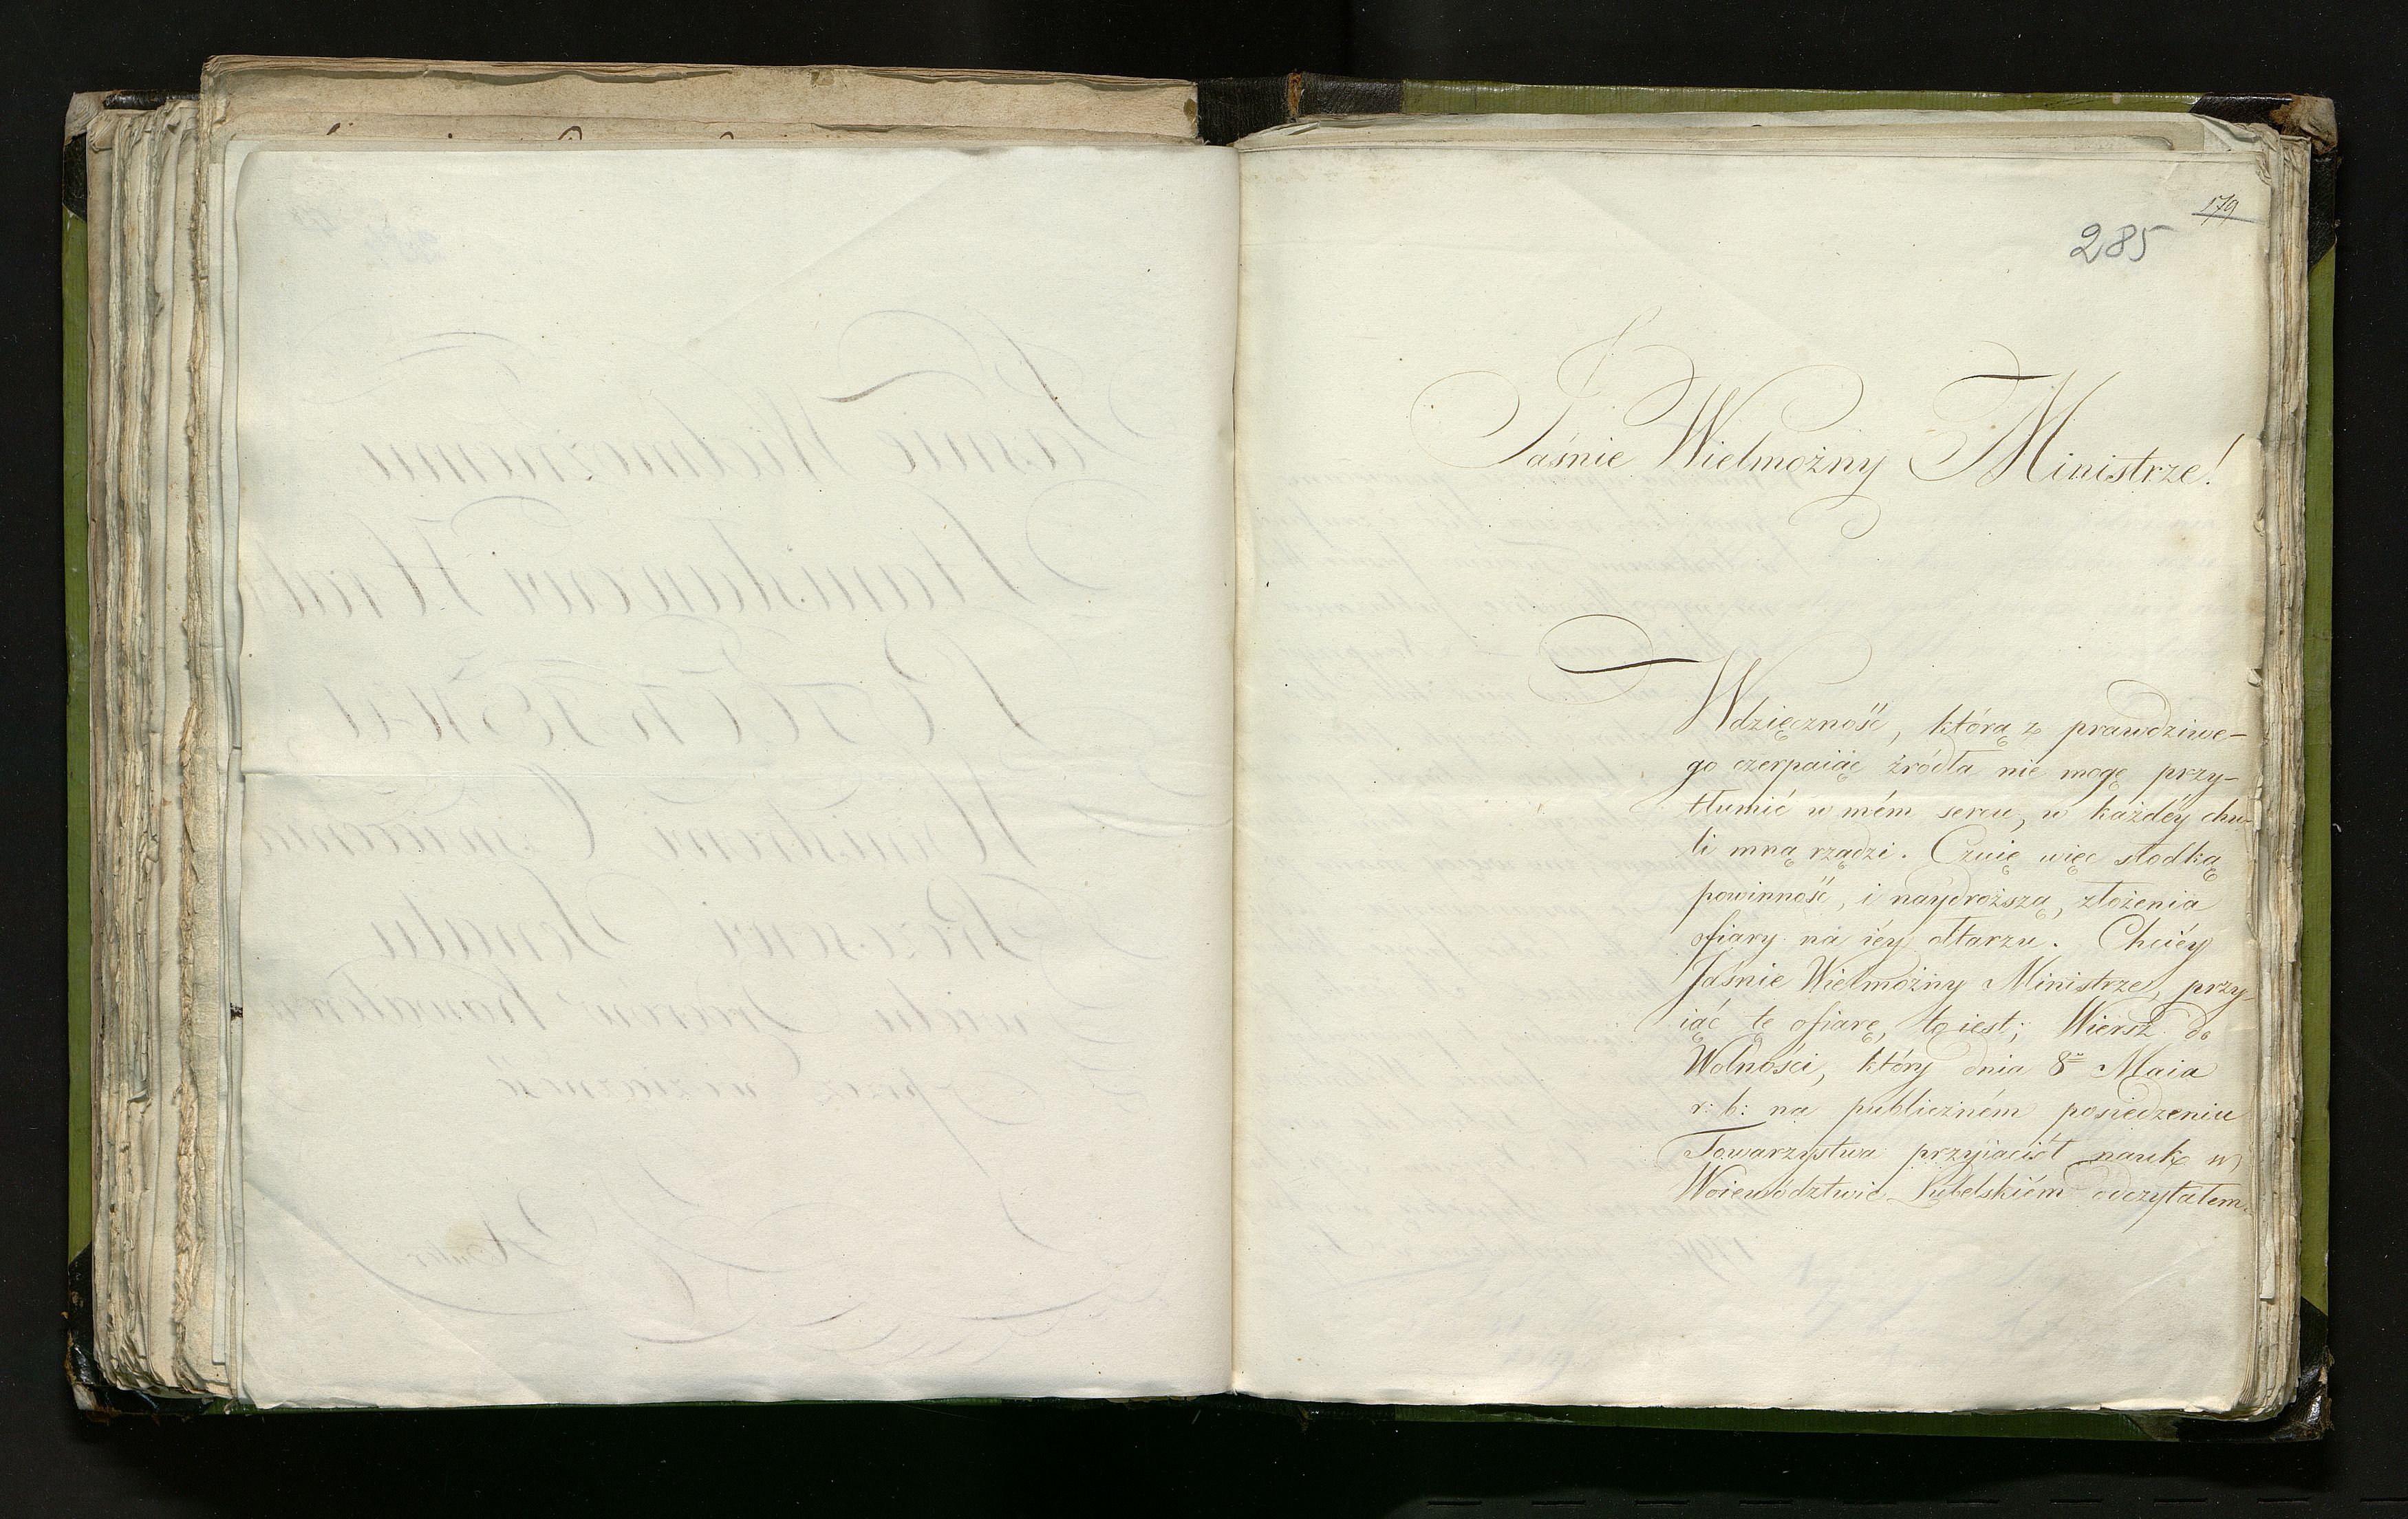 179
285
Jaśnie Wielmożny Ministrze!
Wdzięczność, którą z prawdziwe-
go czerpaiąc źródła nie mogę przy-
tłumić w mém sercu, w każdéy chwi-
li mną rządzi. Czuię więc słodką
powinność, i naydroższą, złożenia
ofiary na iéy ołtarzu. Chciéy
Jaśnie Wielmożny Ministrze, przy-
iąć tę ofiarę, to iest; Wiersz do
Wolności, który dnia 8º Maia
r: b: na publiczném posiedzeniu
Towarzystwa przyiaciół nauk w
Woiewództwie Lubelskiém odczytałem.